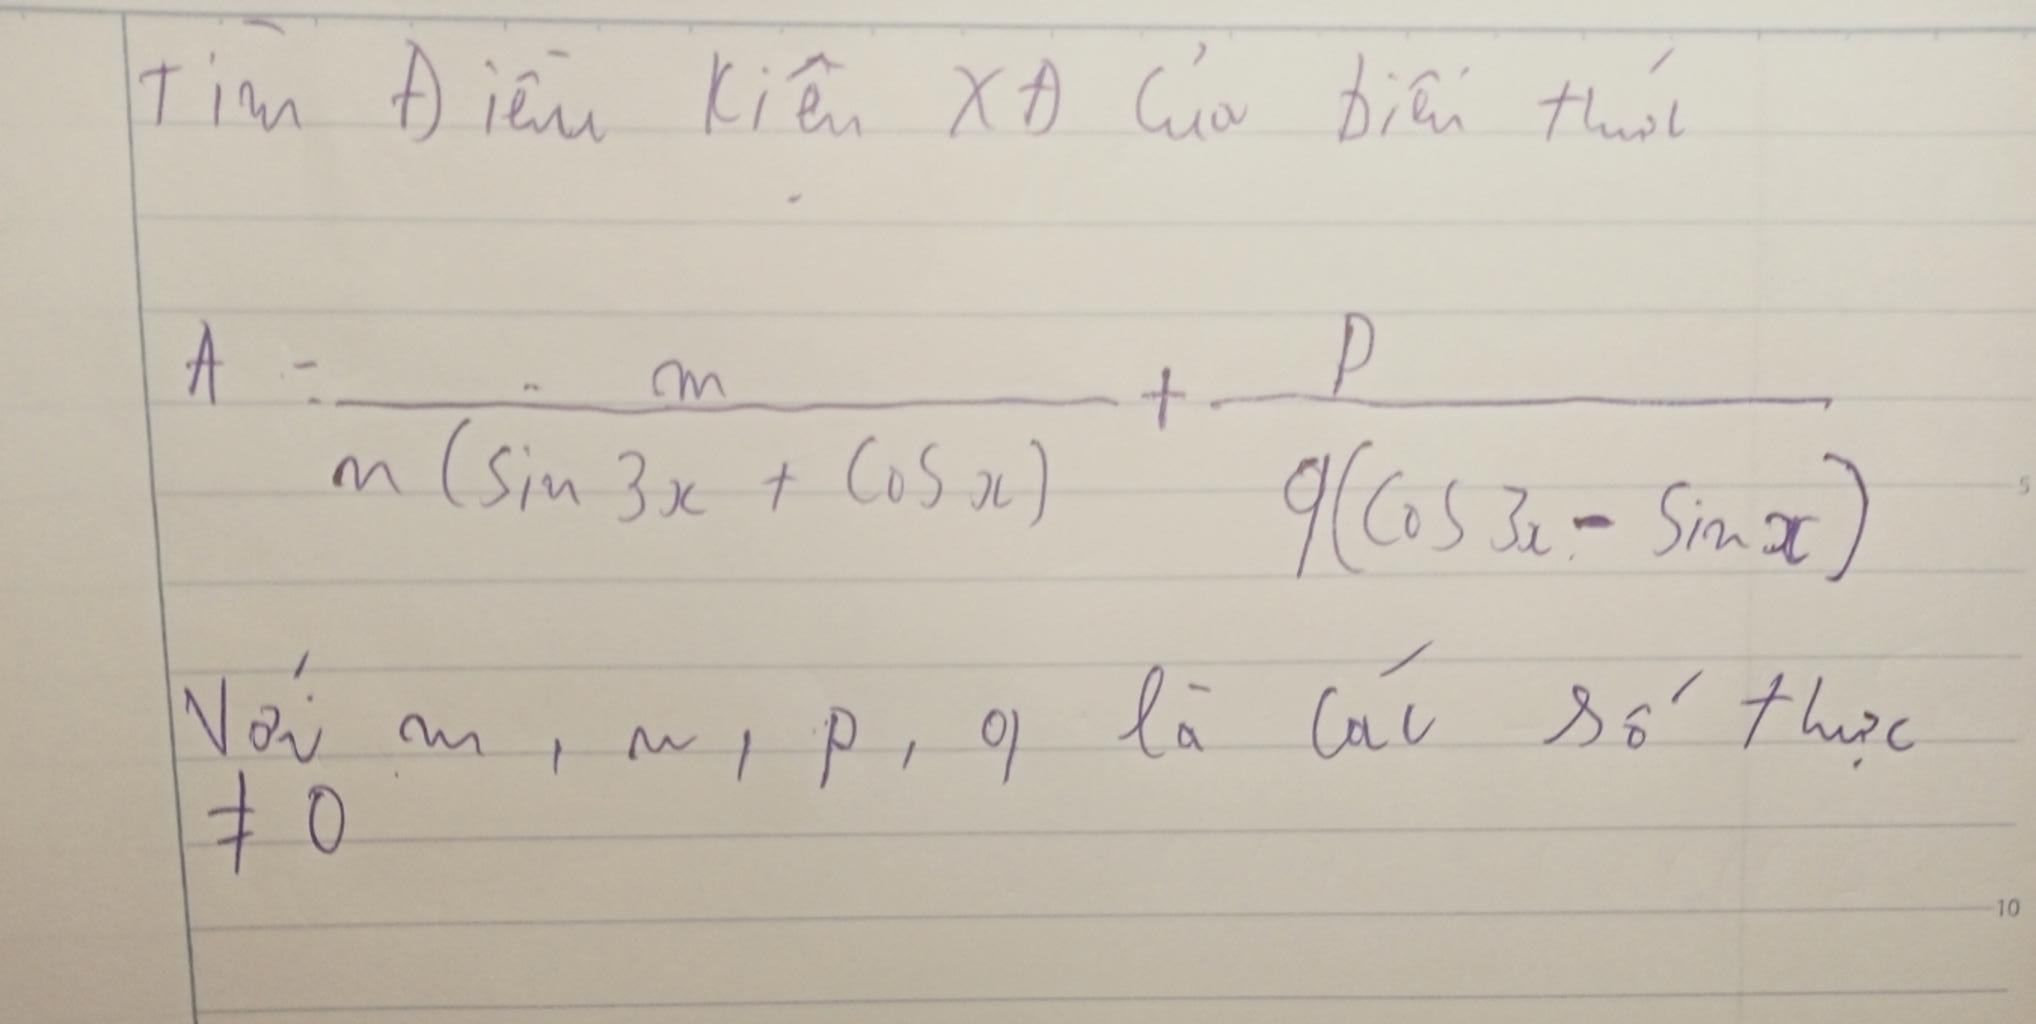 Tìm Điều Kiện XĐ Của biến thức
A = m / n(Sin 3x + Cos x) + p / q(Cos 3x - Sin x)
5
Với m, n, p, q là các số thực
≠ 0
10